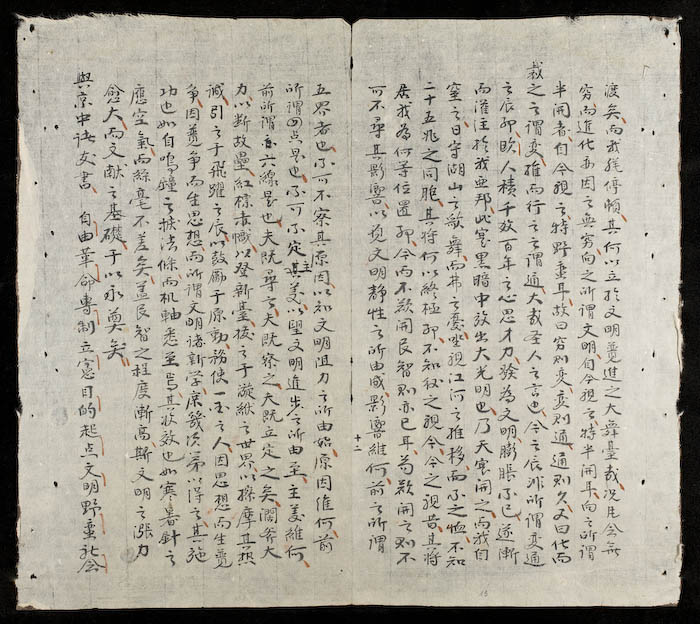 渡矣而我猶停頓其何以立於文明競進之大舞臺哉況凡會無
窮而進化亦因之無窮向之所謂文明自今視之特半開耳向之所謂
半開者自今視之特野蠻耳故曰窮則變變則通通則久又曰化而
裁之之謂變推而行之之謂通大哉聖人之言也今之辰非所謂變通
之辰耶欧人積千数百年之心思才力發為文明膨脹不已遂漸
而灌注於我亜那此寔黑暗中放出大光明也乃天寔開之而我自
窒之日守湖山之歌舞而弗之憂坐視江河之推移而不之恤不知
二十五兆之同胞其將何以終極耶不知秋之視今今之視昔其將
居我為何等位置耶今而不欲開民智則亦已耳苟欲開之則不
可不尋其影響以覓文明靜性之所由成影響維何前之所謂
十二
五界者也不可不察其原因以知文明阻力之所由始原因維何前
所謂四点是也不可不定其主美以望文明進步之所由至主美維何
前所謂六線是也夫既尋之夫既察之夫既立定之矣闊斧大
力以断故壘紅標赤幟以登新臺接之于凝之世界以摩其熱
誠引之于飛躍之辰以鼓勵于原動務使一国之人因思想而生競
争因競争而生思想而所謂文明諸新学庶幾次第以得之其施
功也如自鳴鐘之扶法條而机軸悉至焉其狀效也如寒暑針之
應空氣而絲毫不差矣蓋民智之程度漸高斯文明之漲力
愈大而文献之基礎于以永奠矣
與京中諸友書 自由革命專制立憲目的起点文明野蛮社会